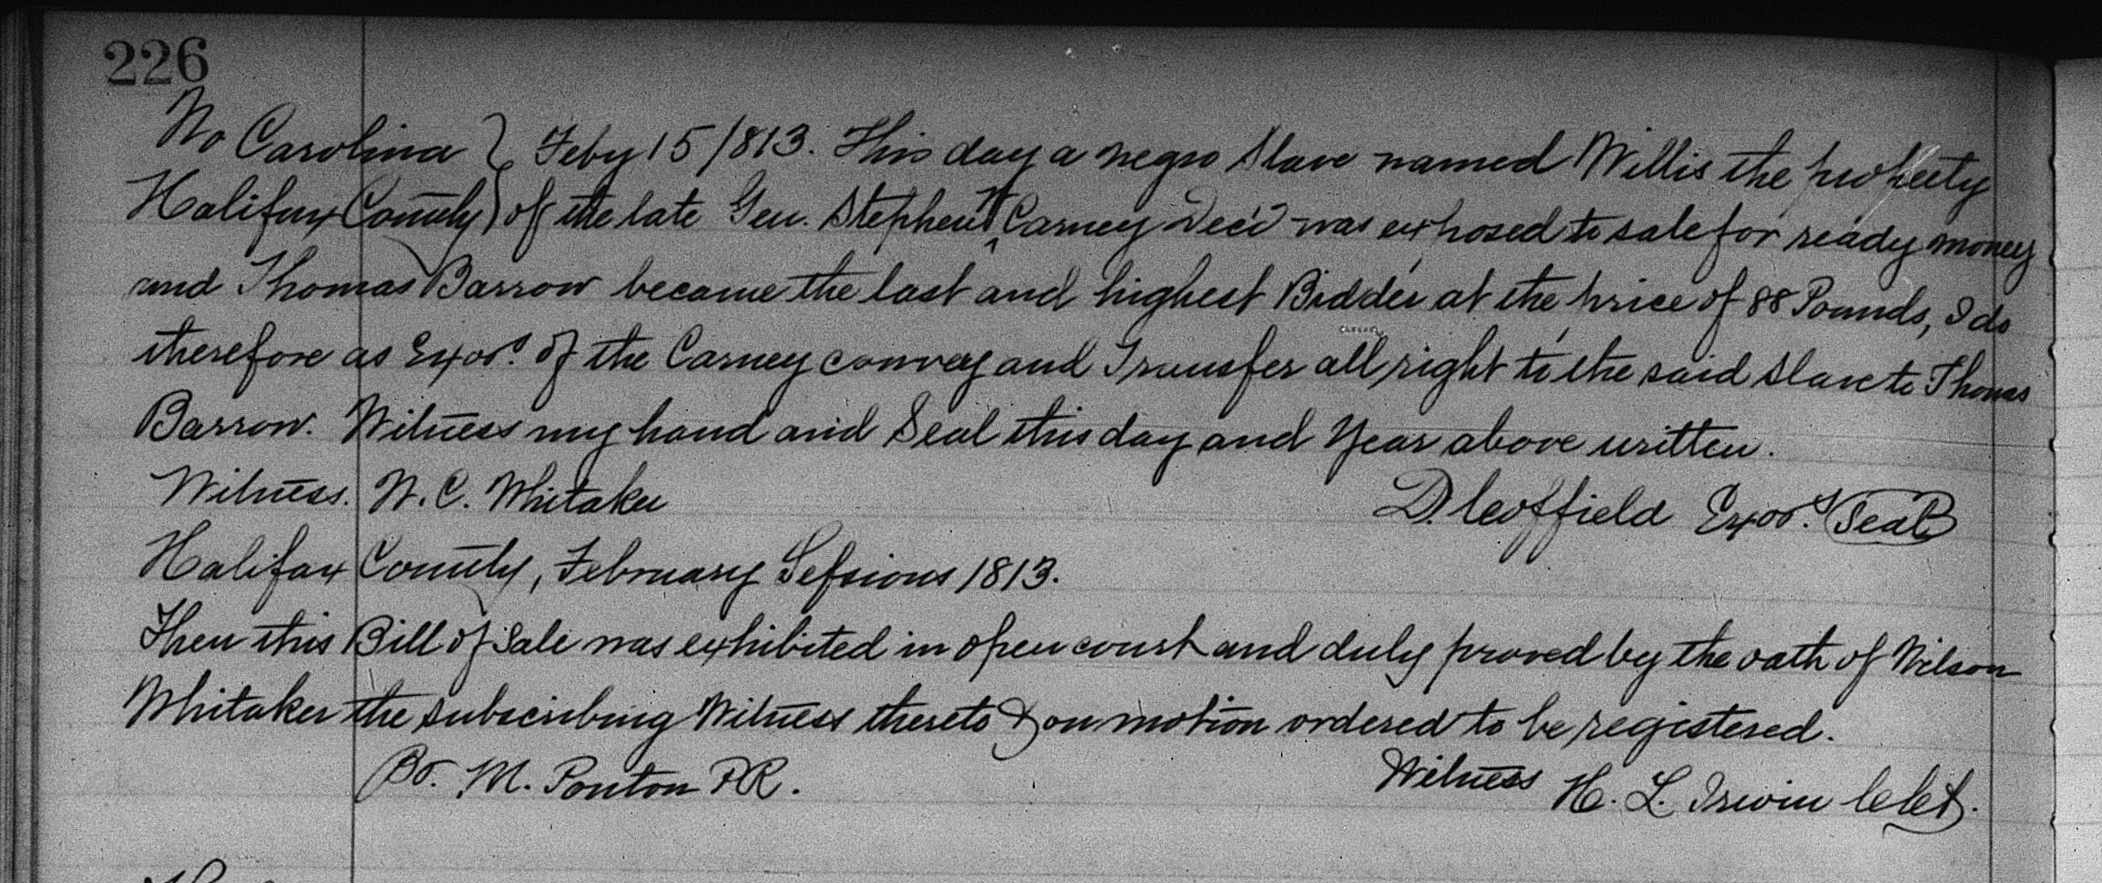 226
No Carolina } Feby 15 1813. This day a negro slave named Willis the property
Halifax County } of the late Gen. Stephen W Carney Dec'd was exposed to sale for ready money
and Thomas Barrow became the last and highest Bidder at the price of 88 Pounds, I do
therefore as Exor. of the Carney convey and Transfer all right to the said slave to Thomas
Barrow. Witness my hand and Seal this day and Year above written.
Witness. W. C. Whitaker D. Coffield Exor. Seal
Halifax County, February Sessions 1813.
Then this Bill of Sale was exhibited in open court and duly proved by the oath of Wilson
Whitaker the subscribing Witness thereto & on motion ordered to be registered.
M. Ponton P.R. Witness H. L. Irwin Clk.